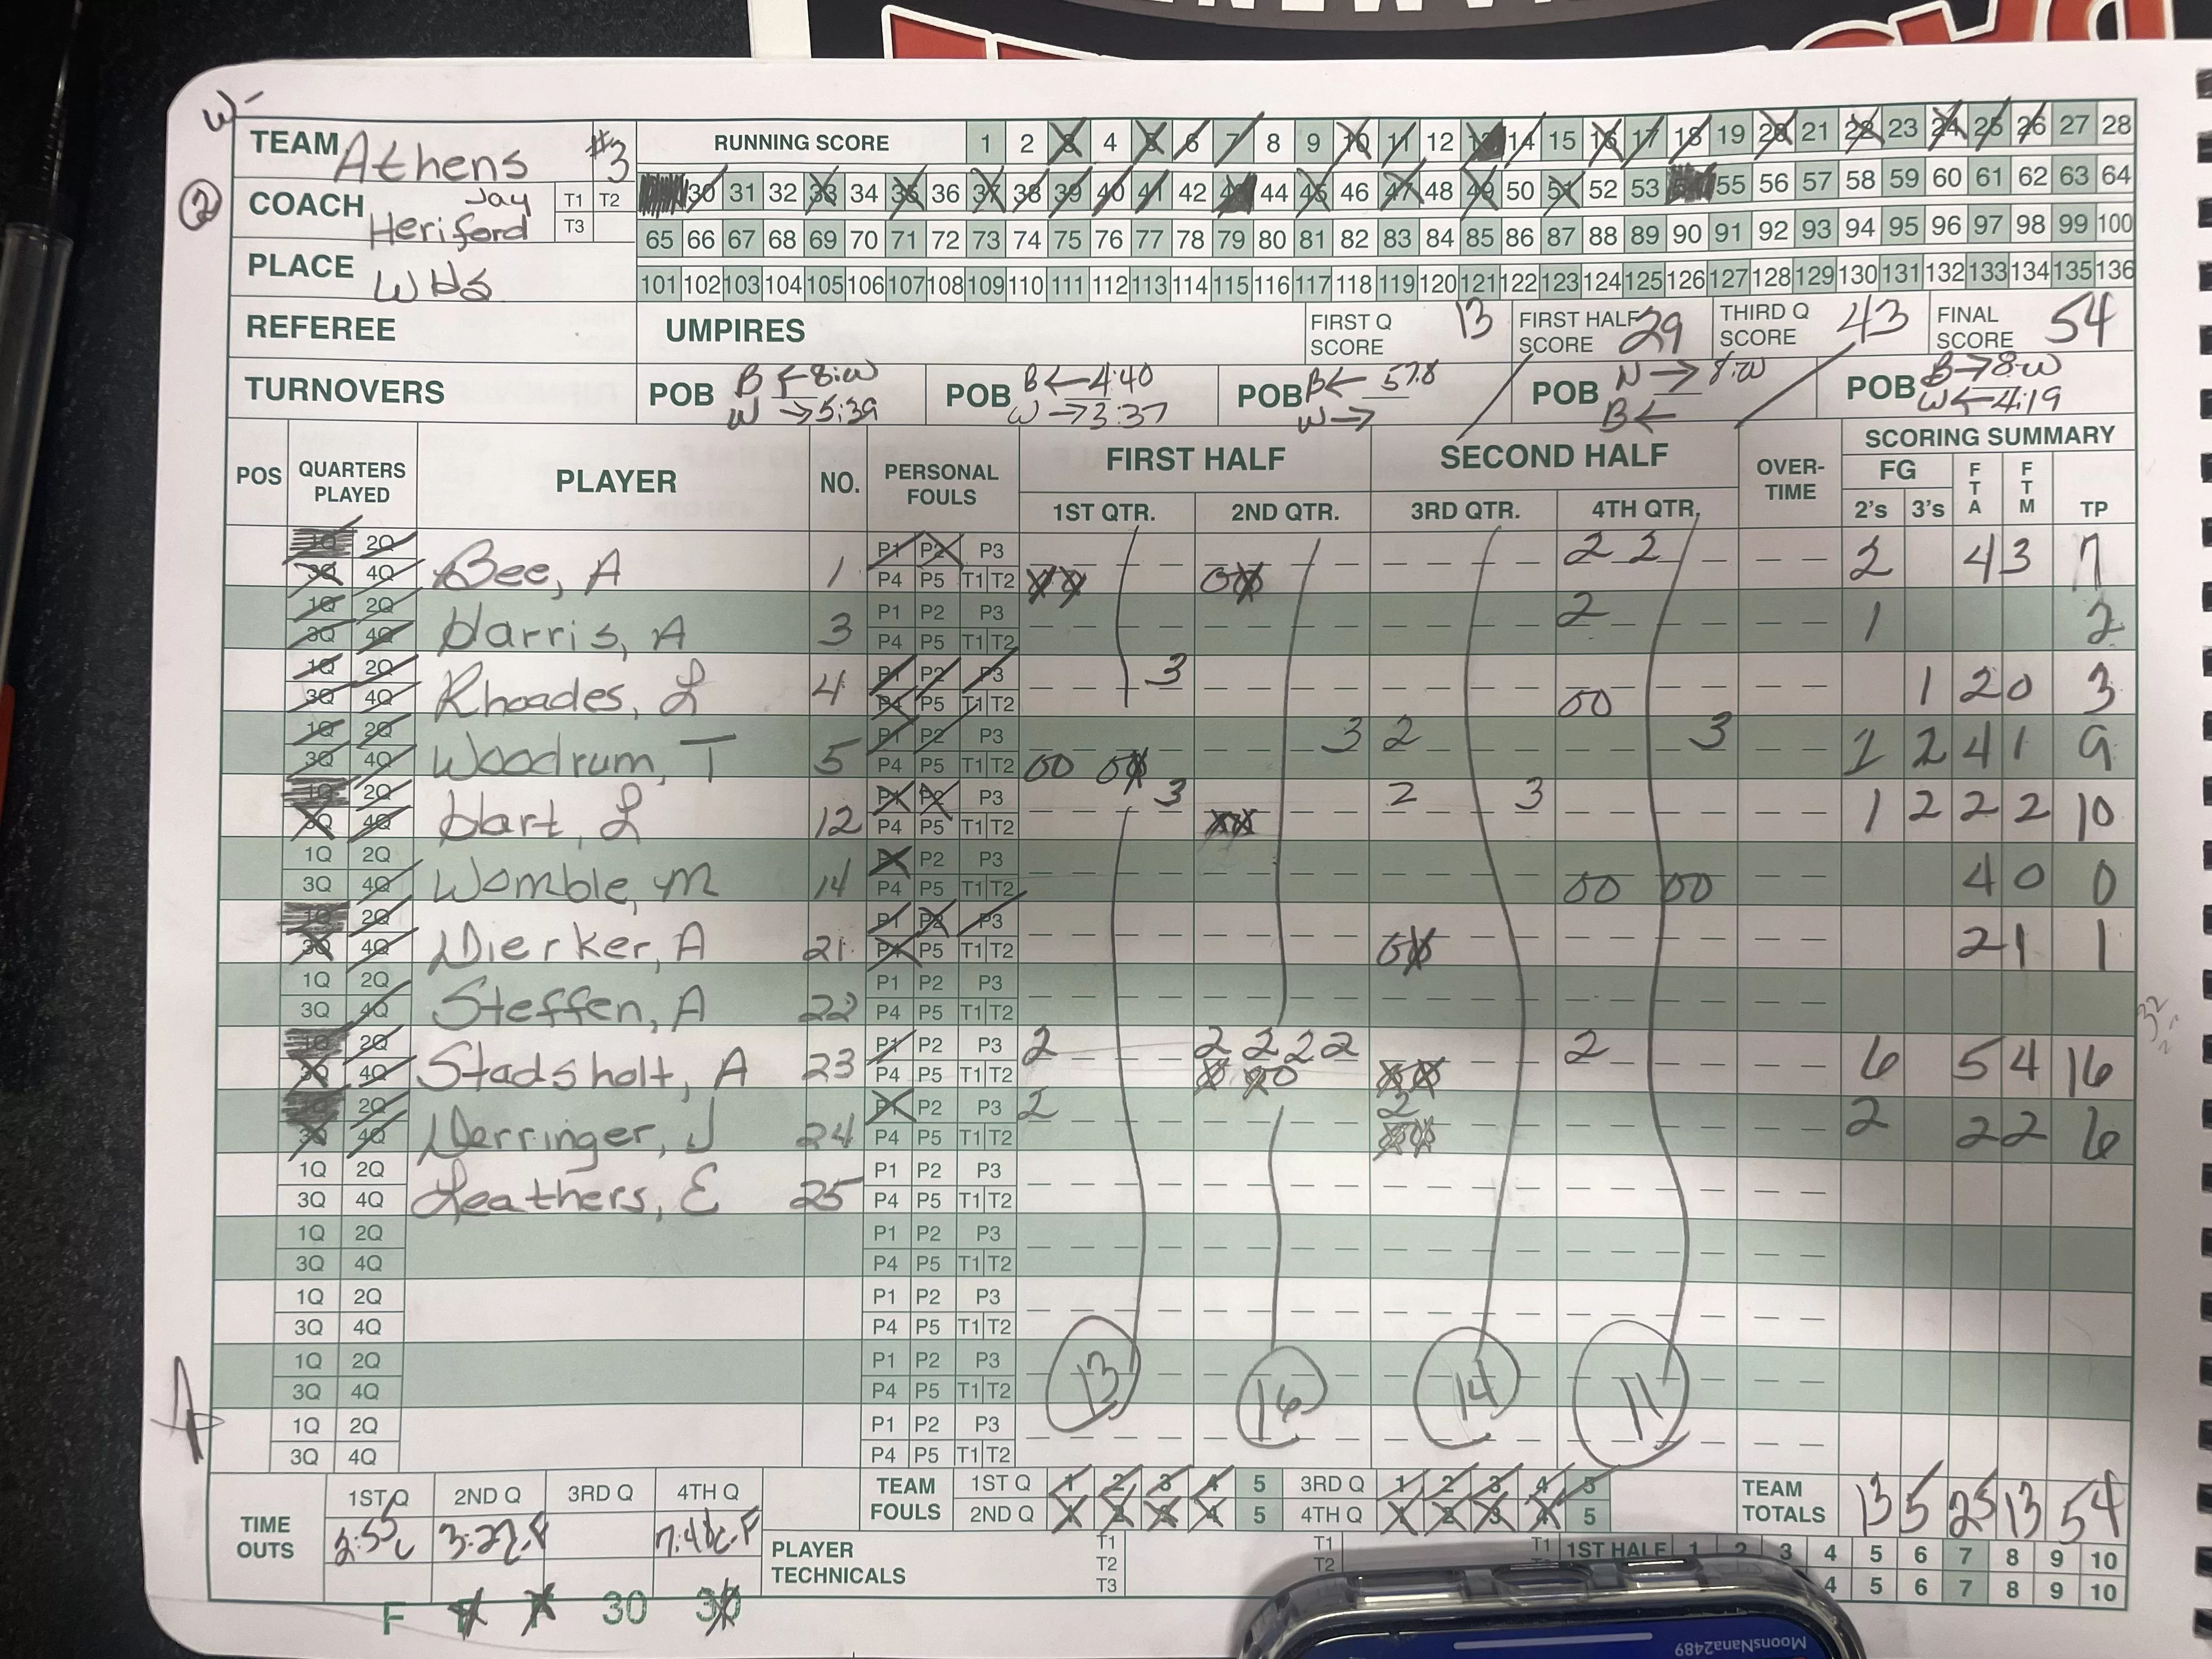 W-
TEAM Athens #3
RUNNING SCORE 1 2 3 4 5 6 7 8 9 10 11 12 13 14 15 16 17 18 19 20 21 22 23 24 25 26 27 28
② COACH Jay Heriford T1 T2 T3
30 31 32 33 34 35 36 37 38 39 40 41 42 43 44 45 46 47 48 49 50 51 52 53 54 55 56 57 58 59 60 61 62 63 64
65 66 67 68 69 70 71 72 73 74 75 76 77 78 79 80 81 82 83 84 85 86 87 88 89 90 91 92 93 94 95 96 97 98 99 100
PLACE WHS
101 102 103 104 105 106 107 108 109 110 111 112 113 114 115 116 117 118 119 120 121 122 123 124 125 126 127 128 129 130 131 132 133 134 135 136
REFEREE UMPIRES FIRST Q SCORE 13 FIRST HALF SCORE 29 THIRD Q SCORE 43 FINAL SCORE 54
TURNOVERS POB B ← 8:00 W → 5:39 POB B ← 4:40 W → 3:37 POB B ← 57.8 W → POB N → 8:00 B ← POB B → 8:00 W ← 4:19
POS QUARTERS PLAYED PLAYER NO. PERSONAL FOULS FIRST HALF SECOND HALF OVER-TIME SCORING SUMMARY
1ST QTR. 2ND QTR. 3RD QTR. 4TH QTR. FG 2's 3's FTA FTM TP
1Q 2Q P1 P2 P3 2 2
3Q 4Q Bee, A 1 P4 P5 T1 T2 2 4 3 7
1Q 2Q P1 P2 P3 2
3Q 4Q Harris, A 3 P4 P5 T1 T2 1 2
1Q 2Q P1 P2 P3 3
3Q 4Q Rhoades, L 4 P4 P5 T1 T2 00 1 2 0 3
1Q 2Q P1 P2 P3 3 2 3
3Q 4Q Woodrum, T 5 P4 P5 T1 T2 00 00 1 2 4 1 9
1Q 2Q P1 P2 P3 3 2 3
3Q 4Q Hart, L 12 P4 P5 T1 T2 1 2 2 2 10
1Q 2Q P1 P2 P3
3Q 4Q Womble, M 14 P4 P5 T1 T2 00 00 4 0 0
1Q 2Q P1 P2 P3
3Q 4Q Dierker, A 21 P4 P5 T1 T2 00 2 1 1
1Q 2Q P1 P2 P3
3Q 4Q Steffen, A 22 P4 P5 T1 T2
1Q 2Q P1 P2 P3 2 2 2 2 2 2
3Q 4Q Stadsholt, A 23 P4 P5 T1 T2 6 5 4 16
1Q 2Q P1 P2 P3 2 2
3Q 4Q Derringer, J 24 P4 P5 T1 T2 2 2 2 6
1Q 2Q P1 P2 P3
3Q 4Q Leathers, E 25 P4 P5 T1 T2
1Q 2Q P1 P2 P3
3Q 4Q P4 P5 T1 T2
1Q 2Q P1 P2 P3
3Q 4Q P4 P5 T1 T2
1Q 2Q P1 P2 P3
3Q 4Q P4 P5 T1 T2
13 16 14 11
1Q 2Q P1 P2 P3
3Q 4Q P4 P5 T1 T2
TIME OUTS 1ST Q 2ND Q 3RD Q 4TH Q
3:27.F
TEAM FOULS 1ST Q 1 2 3 4 5 3RD Q 1 2 3 4 5
2ND Q 1 2 3 4 5 4TH Q 1 2 3 4 5
TEAM TOTALS 13 5 25 13 54
PLAYER TECHNICALS T1 T2 T3 T1 T2 T1 1ST HALF 1 2 3 4 5 6 7 8 9 10
4 5 6 7 8 9 10
F F F 30 30
MoonsNana2489